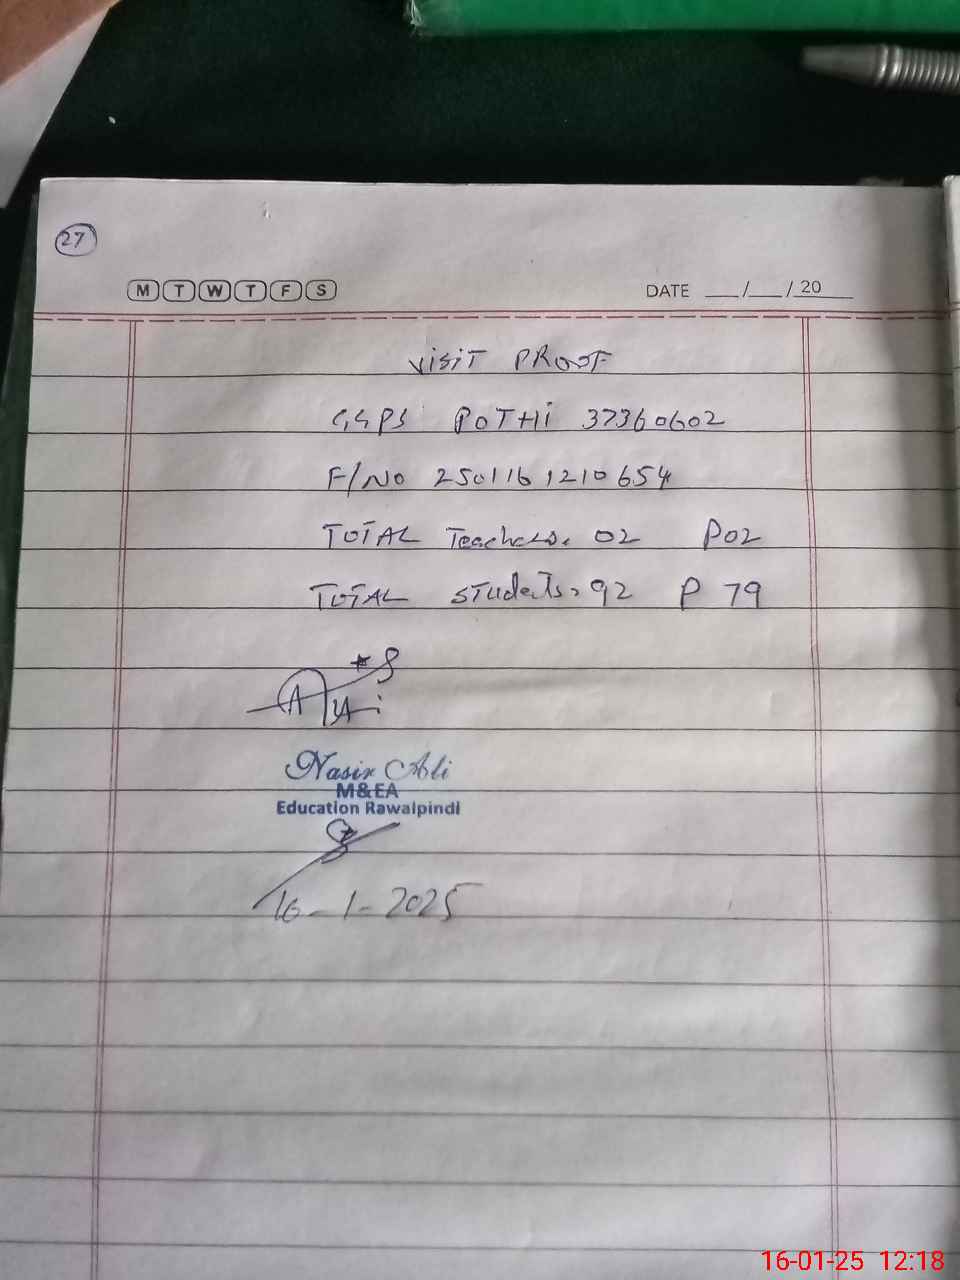 27
M T W T F S DATE __/__/20
VISIT PROOF
GGPS POTHI 37360602
F/NO 2501161210654
TOTAL Teachers. 02 P02
TOTAL Students. 92 P 79
Nasir Ali
M&EA
Education Rawalpindi
16-1-2025
16-01-25 12:18